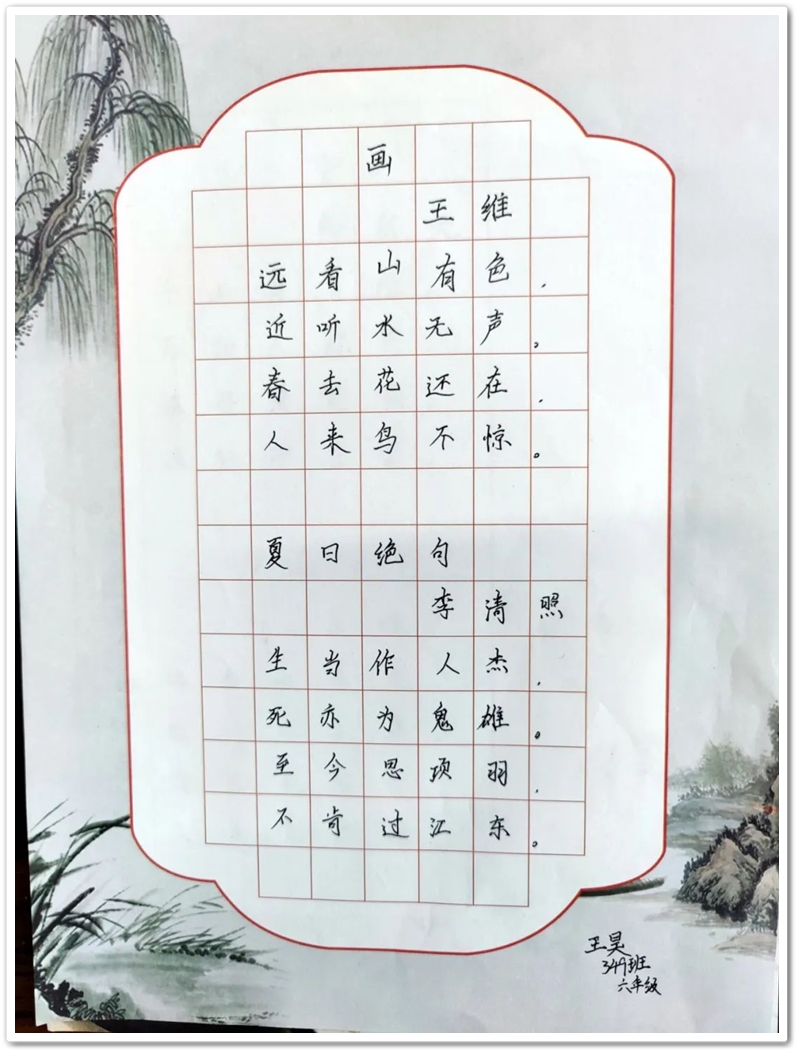 画
王维
远看山有色,
近听水无声。
春去花还在,
人来鸟不惊。
夏日绝句
李清照
生当作人杰,
死亦为鬼雄。
至今思项羽,
不肯过江东。
王昊
349班
六年级